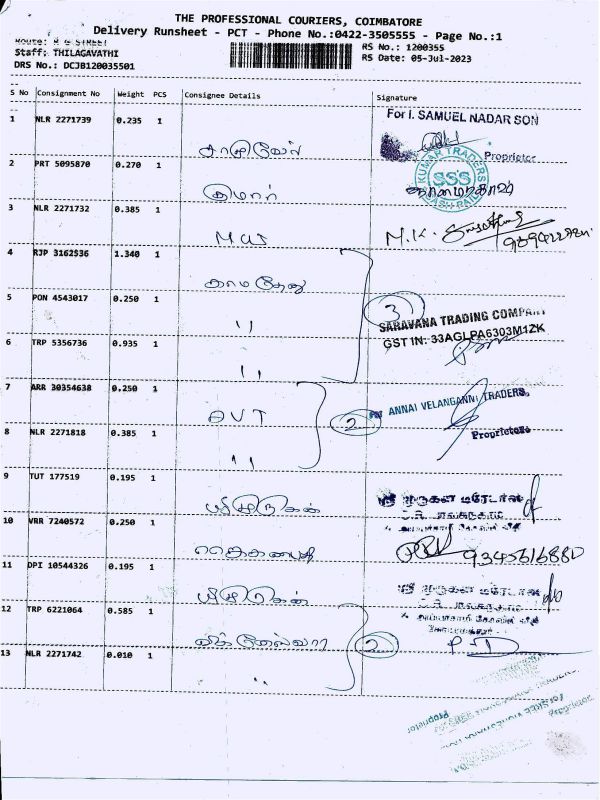 THE PROFESSIONAL COURIERS, COIMBATORE
Delivery Runsheet - PCT - Phone No.:0422-3505555 - Page No.:1
Route: R G STREET
Staff: THILAGAVATHI
DRS No.: DCJB120035501
RS No.: 1200355
RS Date: 05-Jul-2023
S No Consignment No Weight PCS Consignee Details Signature
1 NLR 2271739 0.235 1
For I. SAMUEL NADAR SON
Proprietor
2 PRT 5095870 0.270 1 குமார்
KUMAR TRADERS
SSS
3 NLR 2271732 0.385 1
M.K.
4 RJP 3162536 1.340 1 காமதேனு
5 PON 4543017 0.250 1 "
3
SARAVANA TRADING COMPANY
GST IN: 33AGLPA6303M1ZK
6 TRP 5356736 0.935 1 "
7 ARR 30354638 0.250 1 AVT
2
For ANNAI VELANGANNI TRADERS,
Proprietors
8 NLR 2271818 0.385 1 "
9 TUT 177519 0.195 1
ஸ்ரீ முருகன் டிரேடர்ஸ்
10 VRR 7240572 0.250 1
9345616880
11 DPI 10544326 0.195 1
ஸ்ரீ முருகன் டிரேடர்ஸ்
12 TRP 6221064 0.585 1
2
13 NLR 2271742 0.010 1 "
Proprietor